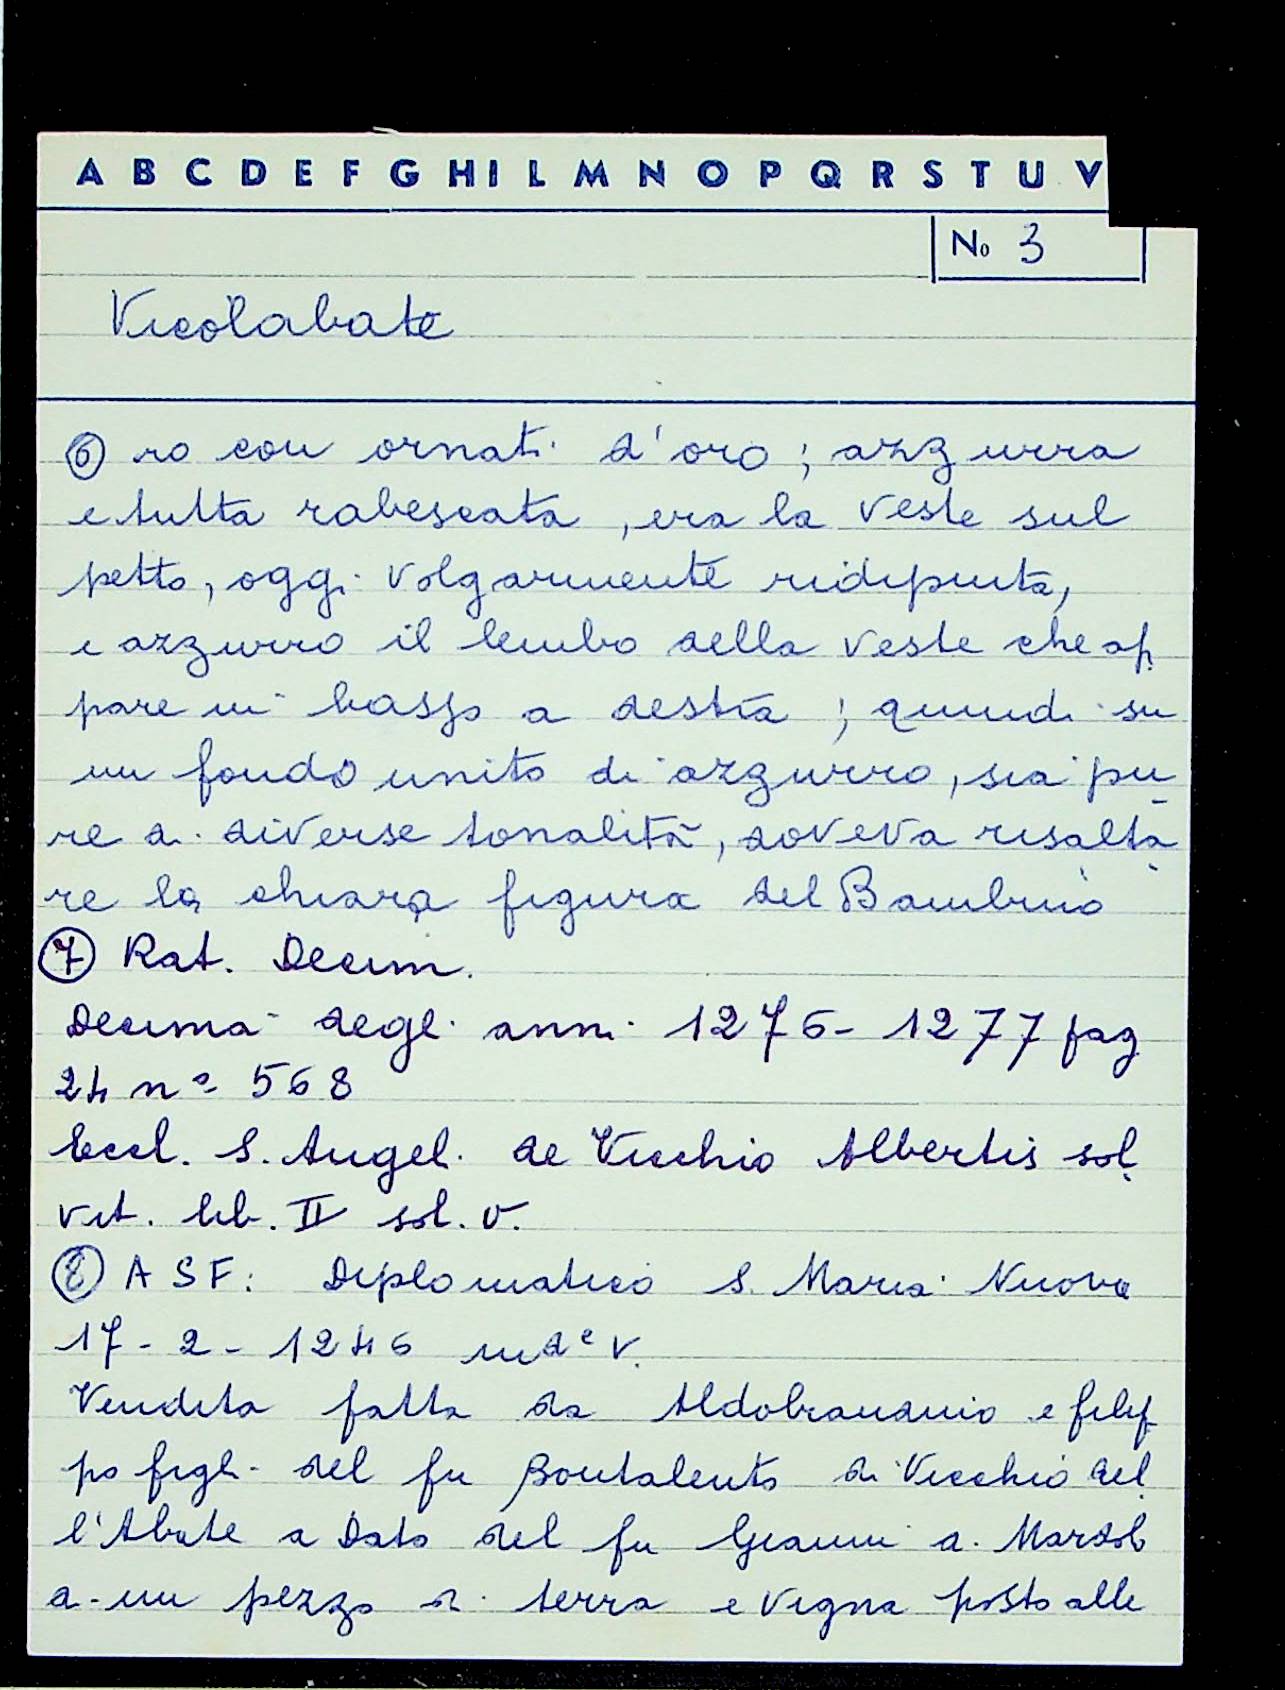 A B C D E F G H I L M N O P Q R S T U V
No 3
Vicolabate
⑥ ro con ornati d'oro; azzurra
e tutta rabescata, era la veste sul
petto, oggi volgarmente ridipinta,
e azzurro il lembo della veste che ap
pare in basso a destra; quindi su
un fondo unito di azzurro, sia pu
re di diverse tonalità, doveva risalta
re la chiara figura del Bambino
⑦ Rat. Decim.
Decima degli anni 1276-1277 pag
24 nº 568
Eccl. S. Angeli de Vicchio Albertis sol
vit. lib. II sol. V.
⑧ ASF: Diplomatico S. Maria Nuova
17-2-1246 indᵉ V.
Vendita fatta da Aldobrandino e filip
po figli del fu Bontalento di Vicchio del
l'Abate a Dato del fu Gianni di
di un pezzo di terra e vigna posto alle